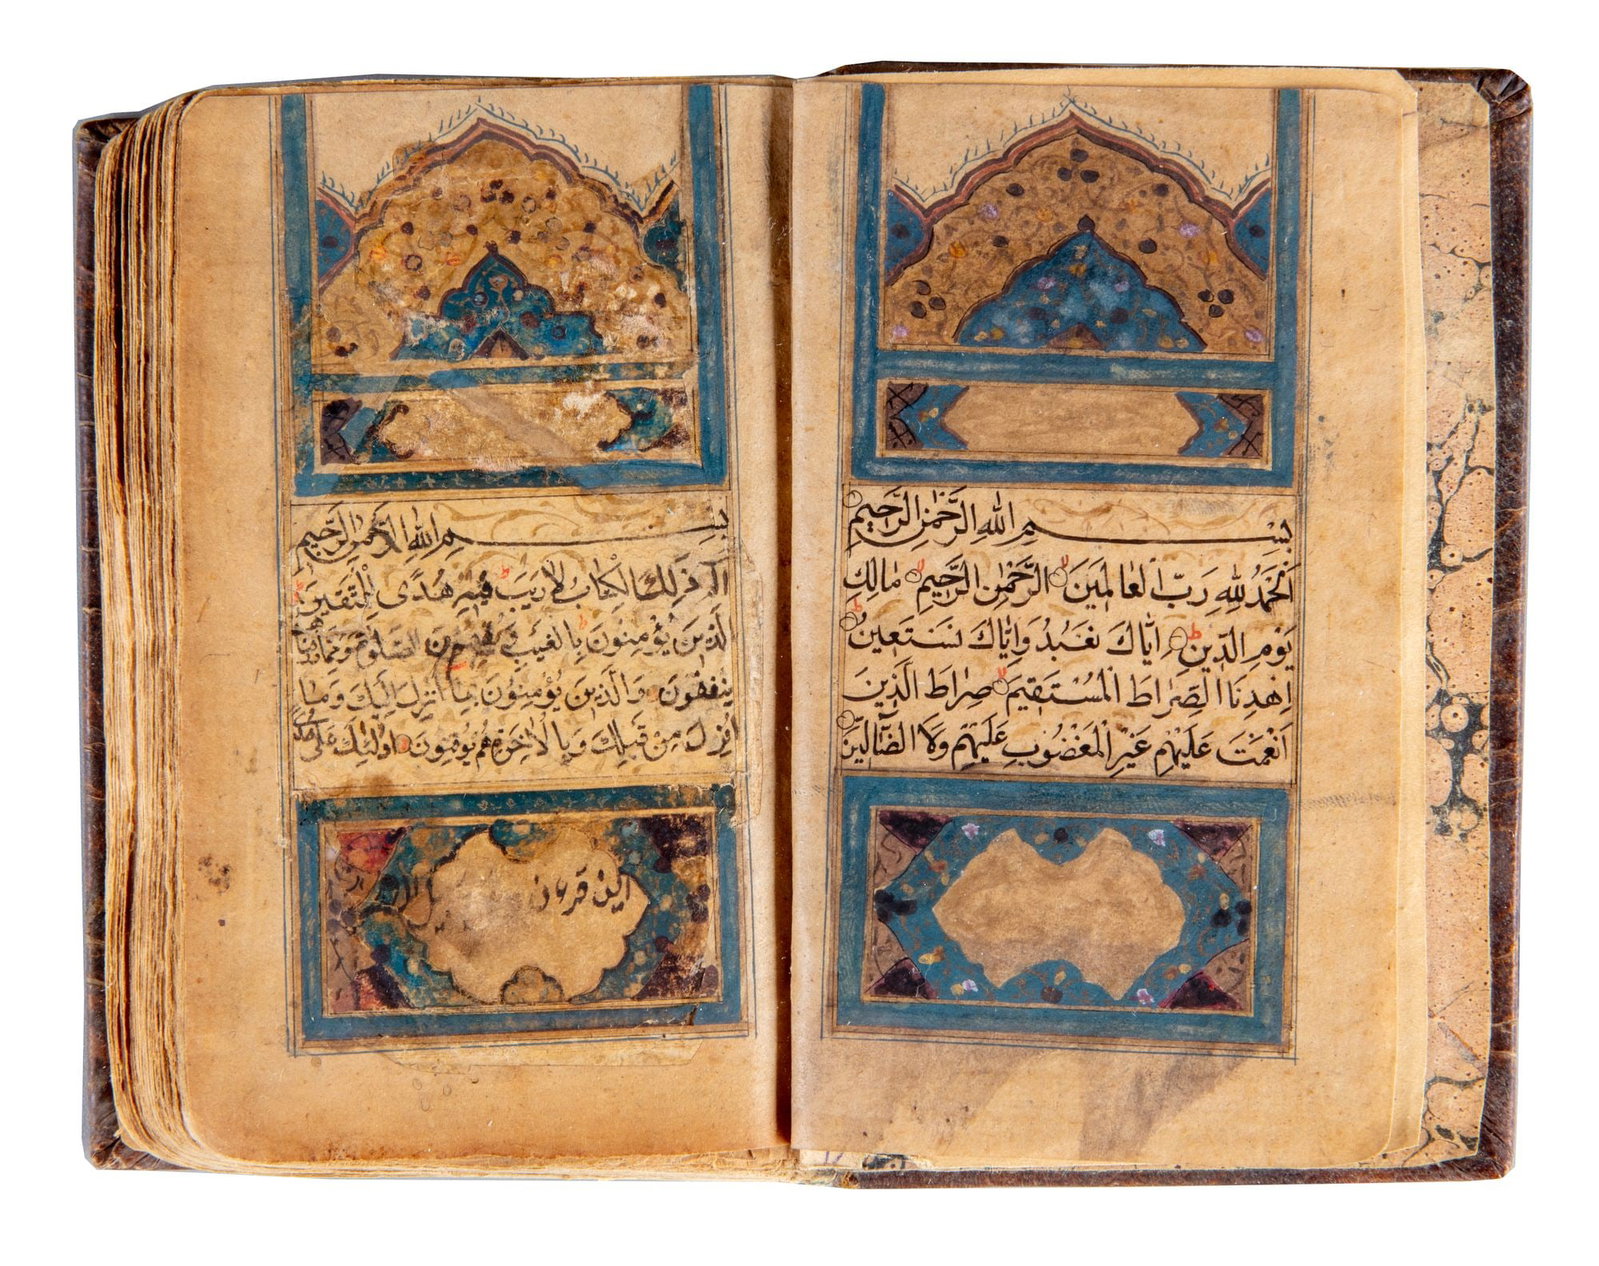 بِسْمِ اللهِ الرَّحْمٰنِ الرَّحِيمِ
اَلْحَمْدُ لِلّٰهِ رَبِّ الْعَالَمِينَ الرَّحْمٰنِ الرَّحِيمِ مَالِكِ
يَوْمِ الدِّينِ اِيَّاكَ نَعْبُدُ وَاِيَّاكَ نَسْتَعِينُ
اِهْدِنَا الصِّرَاطَ الْمُسْتَقِيمَ صِرَاطَ الَّذِينَ
اَنْعَمْتَ عَلَيْهِمْ غَيْرِ الْمَغْضُوبِ عَلَيْهِمْ وَلَا الضَّالِّينَ
بِسْمِ اللهِ الرَّحْمٰنِ الرَّحِيمِ
الم ذٰلِكَ الْكِتَابُ لَا رَيْبَ فِيهِ هُدًى لِلْمُتَّقِينَ
الَّذِينَ يُؤْمِنُونَ بِالْغَيْبِ وَ الصَّلٰوةَ وَمِمَّا
يُنْفِقُونَ وَالَّذِينَ يُؤْمِنُونَ بِمَا اُنْزِلَ اِلَيْكَ وَمَا
اُنْزِلَ مِنْ قَبْلِكَ وَبِالْاٰخِرَةِ هُمْ يُوقِنُونَ اُولٰئِكَ عَلٰى